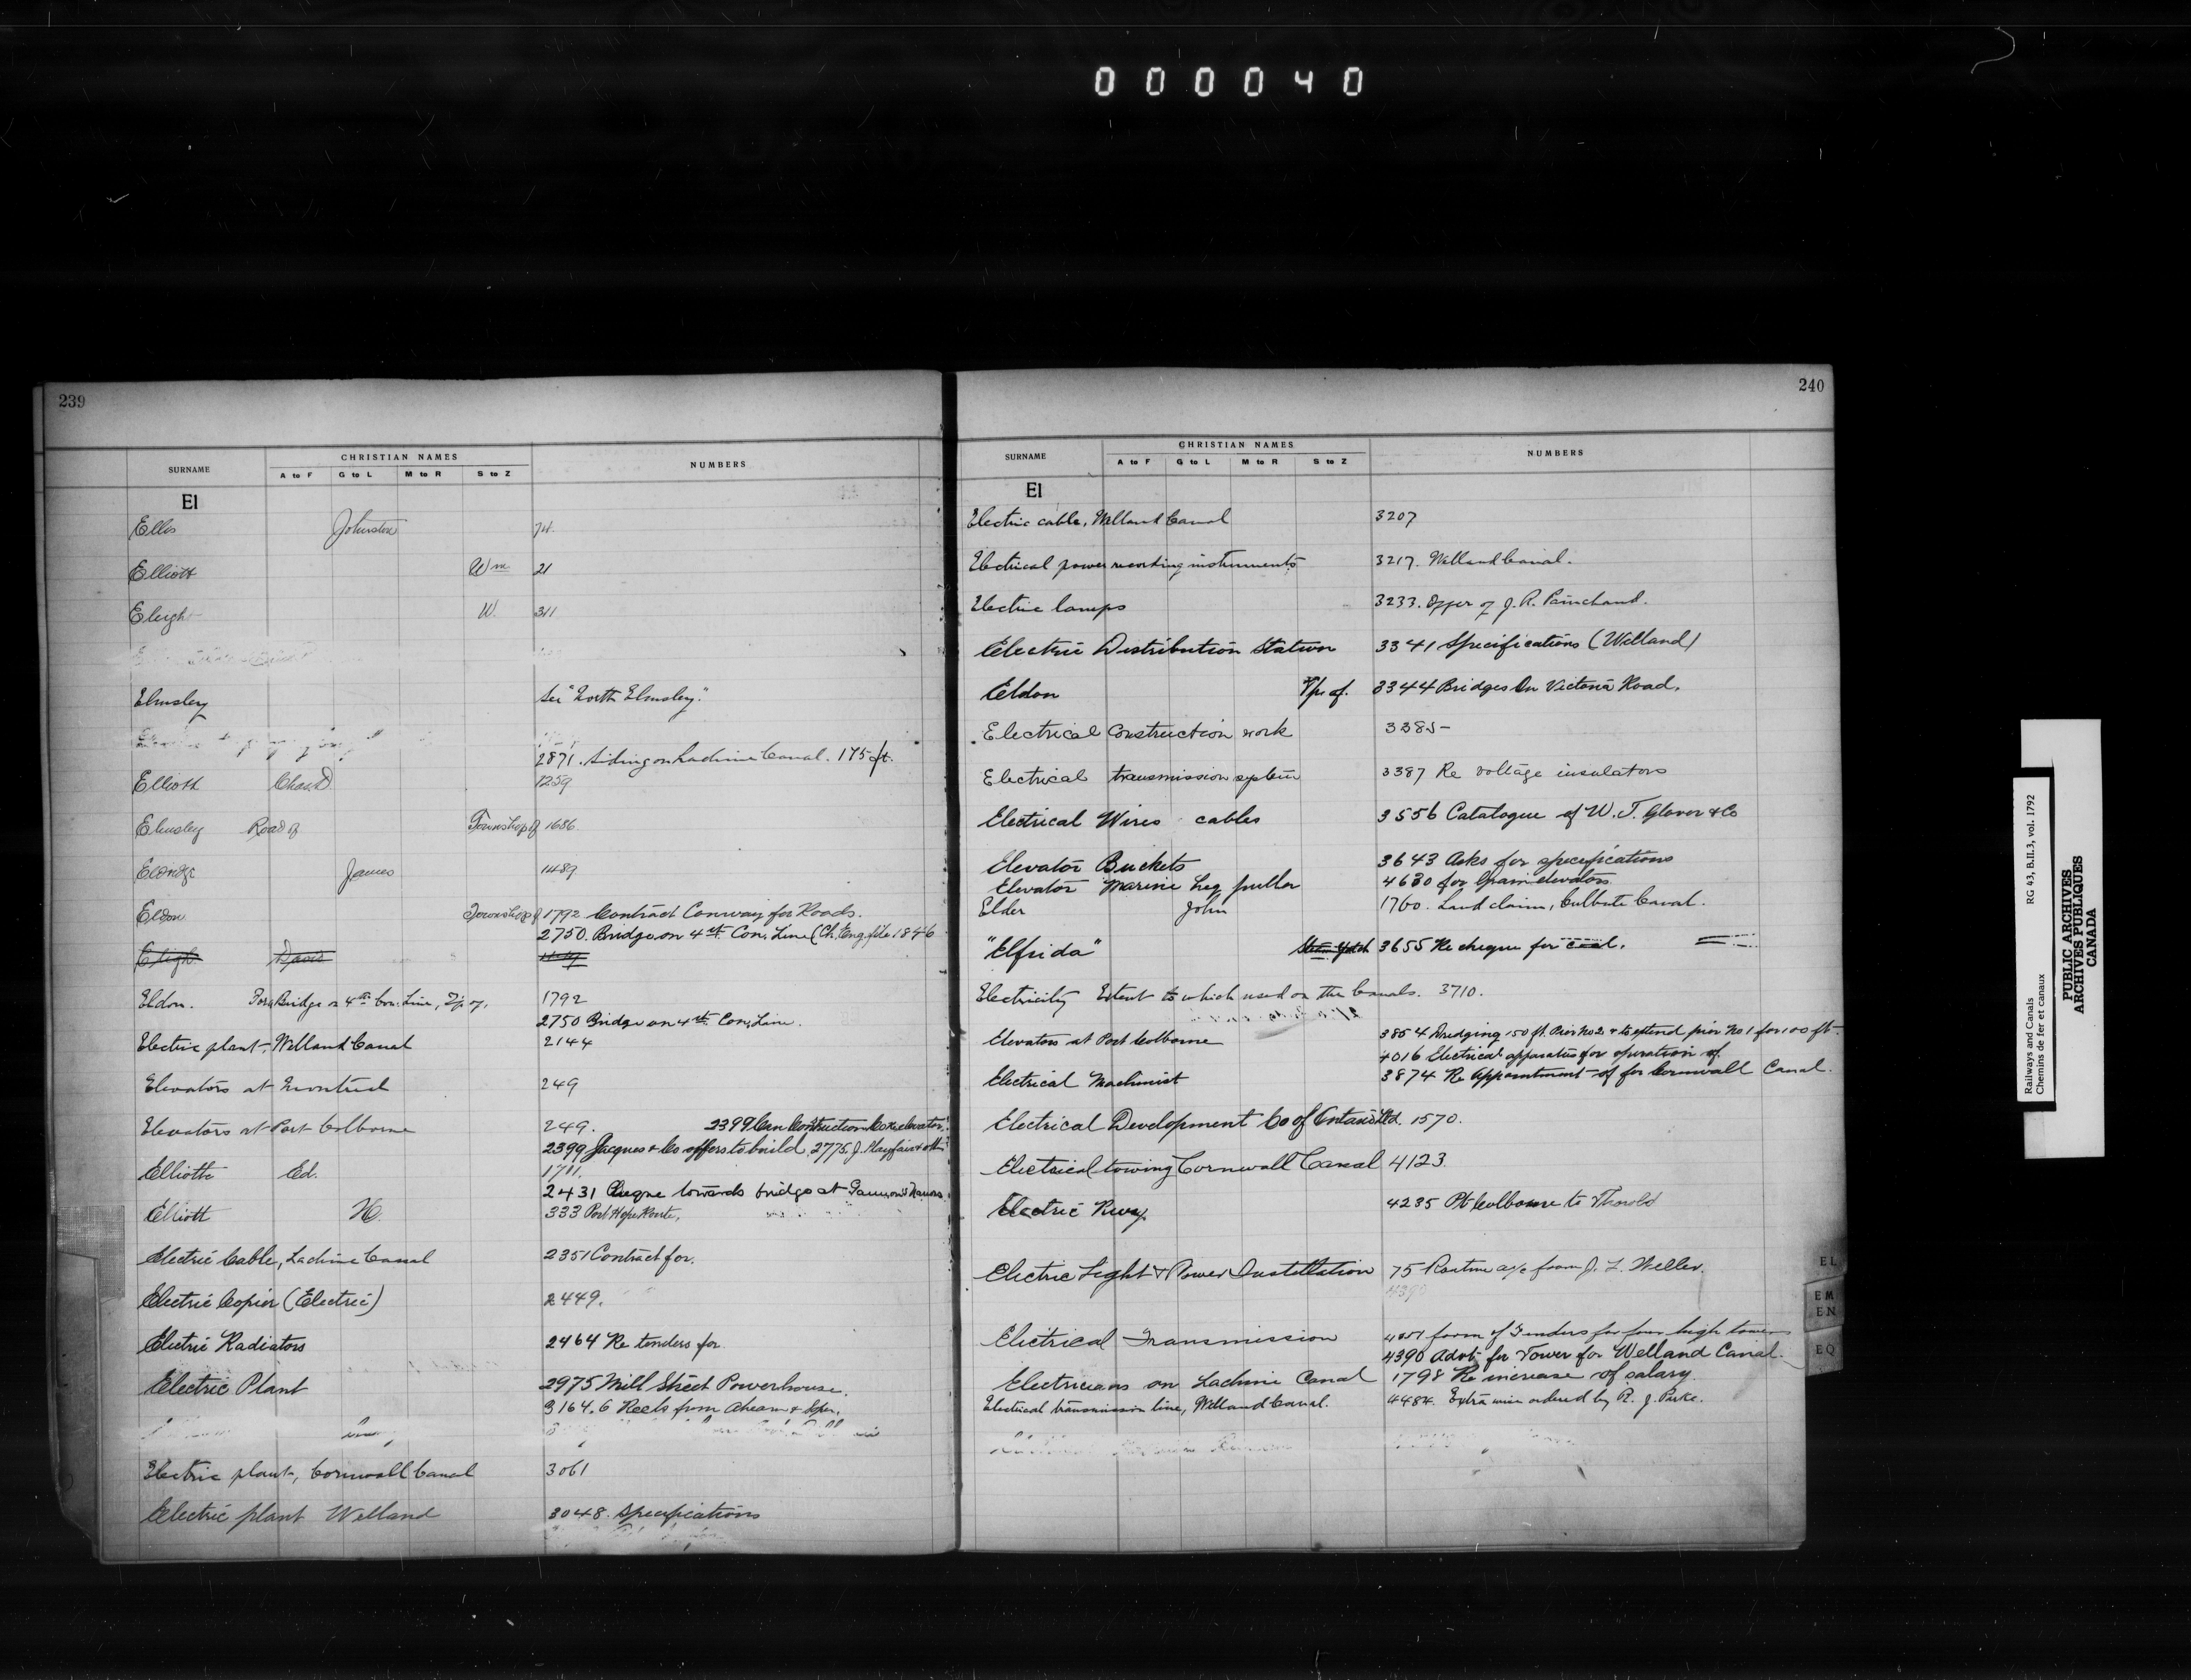 000040
239
SURNAME CHRISTIAN NAMES NUMBERS
A to F G to L M to R S to Z
El
Ellis Johnston 74.
Elliott Wm 21
Eleigh W. 311
Elmsley See "North Elmsley."
2871. Siding on Lachine Canal. 175 ft.
Elliott Chas. D. 1259
Elmsley Road of Township of 1686
Eldridge James 1489
Eldon Township of 1792 Contract Conway for Roads.
2750. Bridge on 4th Con. Line (Ch. Eng. file 1846
Eleigh Davis
Eldon. Bridge on 4th Con. Line, Tp. of, 1792
2750 Bridge on 4th Con. Line.
Electric plant, Welland Canal 2144
Elevators at Montreal 249
Elevators at Port Colborne 249. 2399 Can Construction Co re elevator
2399 Jacques & Co offers to build 2775 J. Playfair & oth
Elliott Ed. 1711.
2431 Cheque towards bridge at
Elliott H. 333 Port Hope Route,
Electric Cable, Lachine Canal 2351 Contract for.
Electric Copier (Electric) 2449.
Electric Radiators 2464 Re tenders for
Electric Plant 2975 Mill Street Powerhouse.
3164. 6 Reels from Ahearn & Soper.
Electric plant, Cornwall Canal 3061
Electric plant Welland 3048. Specifications
240
SURNAME CHRISTIAN NAMES NUMBERS
A to F G to L M to R S to Z
El
Electric cable, Welland Canal 3207
Electrical power recording instruments 3217. Welland Canal.
Electric lamps 3233. Offer of J. R. Painchaud.
Electric Distribution Station 3341 Specifications (Welland)
Eldon T/p of. 3344 Bridges On Victoria Road.
Electrical Construction work 3385
Electrical transmission system 3387 Re voltage insulators
Electrical Wires cables 3556 Catalogue of W. T. Glover & Co
Elevator Buckets 3643 Asks for specifications
Elevator Marine Leg puller 4630 for Grain elevators
Elder John 1760. Land claim, Culbute Canal.
"Elfrida" Steam Yatch 3655 Re cheque for coal.
Electricity Extent to which used on the Canals. 3710.
Elevators at Port Colborne 3854 Dredging 150 ft. Pier No 2 & to extend pier No 1 for 100 ft.
4016 Electrical apparatus for operation of
Electrical Machinist 3874 Re Appointment of for Cornwall Canal.
Electrical Development Co of Ontario Ltd. 1570.
Electrical towing Cornwall Canal 4123.
Electric Rway. 4235 Pt Colborne to Thorold
Electric Light & Power Installation 75 Routine a/c from J. L. Weller.
4390
Electrical Transmission form of Tenders for four high towers
4390 Advt. for Tower for Welland Canal.
Electricians on Lachine Canal 1798 Re increase of salary.
Electrical transmission line, Welland Canal. 4484. Extra wire ordered by R. J. Parke.
EL
EM
EN
EQ
Railways and Canals RG 43, B.II.3, vol. 1792
Chemins de fer et canaux
PUBLIC ARCHIVES
ARCHIVES PUBLIQUES
CANADA